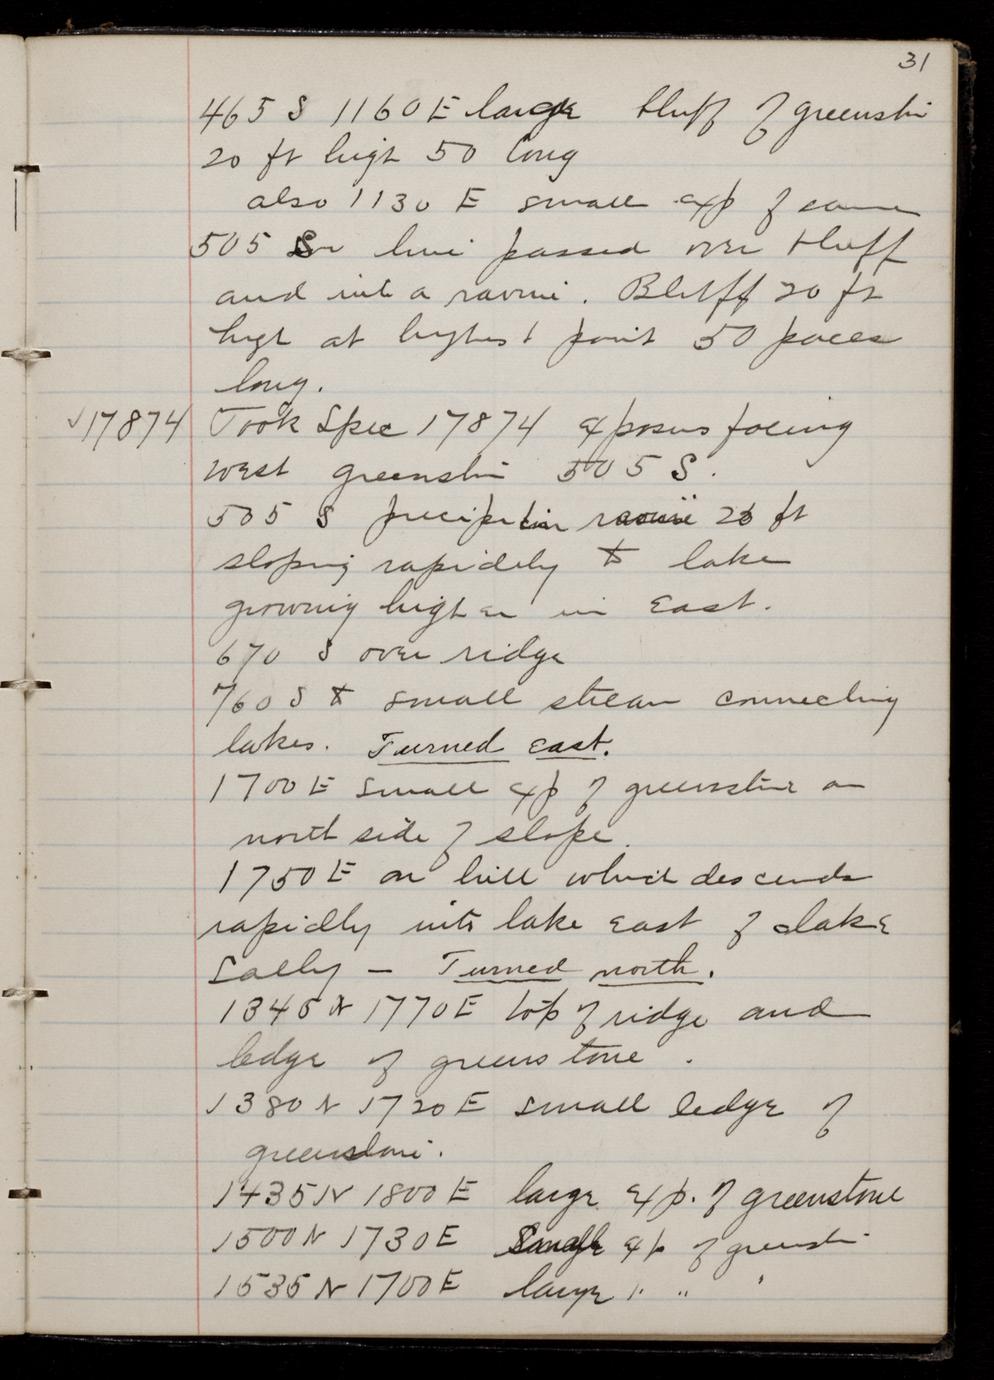 31
465 S 1160 E large bluff of greenstn
20 ft high 50 long
also 1130 E small exp of same
505 S line passed over bluff
and into a ravine. Bluff 20 ft
high at highest point 50 paces
long.
√17874 Took Spec 17874 exposure facing
west greenstn 505 S.
505 S ravine 20 ft
sloping rapidly to lake
growing higher in East.
670 S over ridge
760 S to small stream connecting
lakes. Turned east.
1700 E small exp of greenstone on
north side of slope.
1750 E on hill which descends
rapidly into lake East of lake
Sally – Turned north.
1345 N 1770 E top of ridge and
ledge of greenstone.
1380 N 1720 E small ledge of
greenstone.
1435 N 1800 E large exp. of greenstone
1500 N 1730 E Small exp of greenstn
1535 N 1700 E large " " "